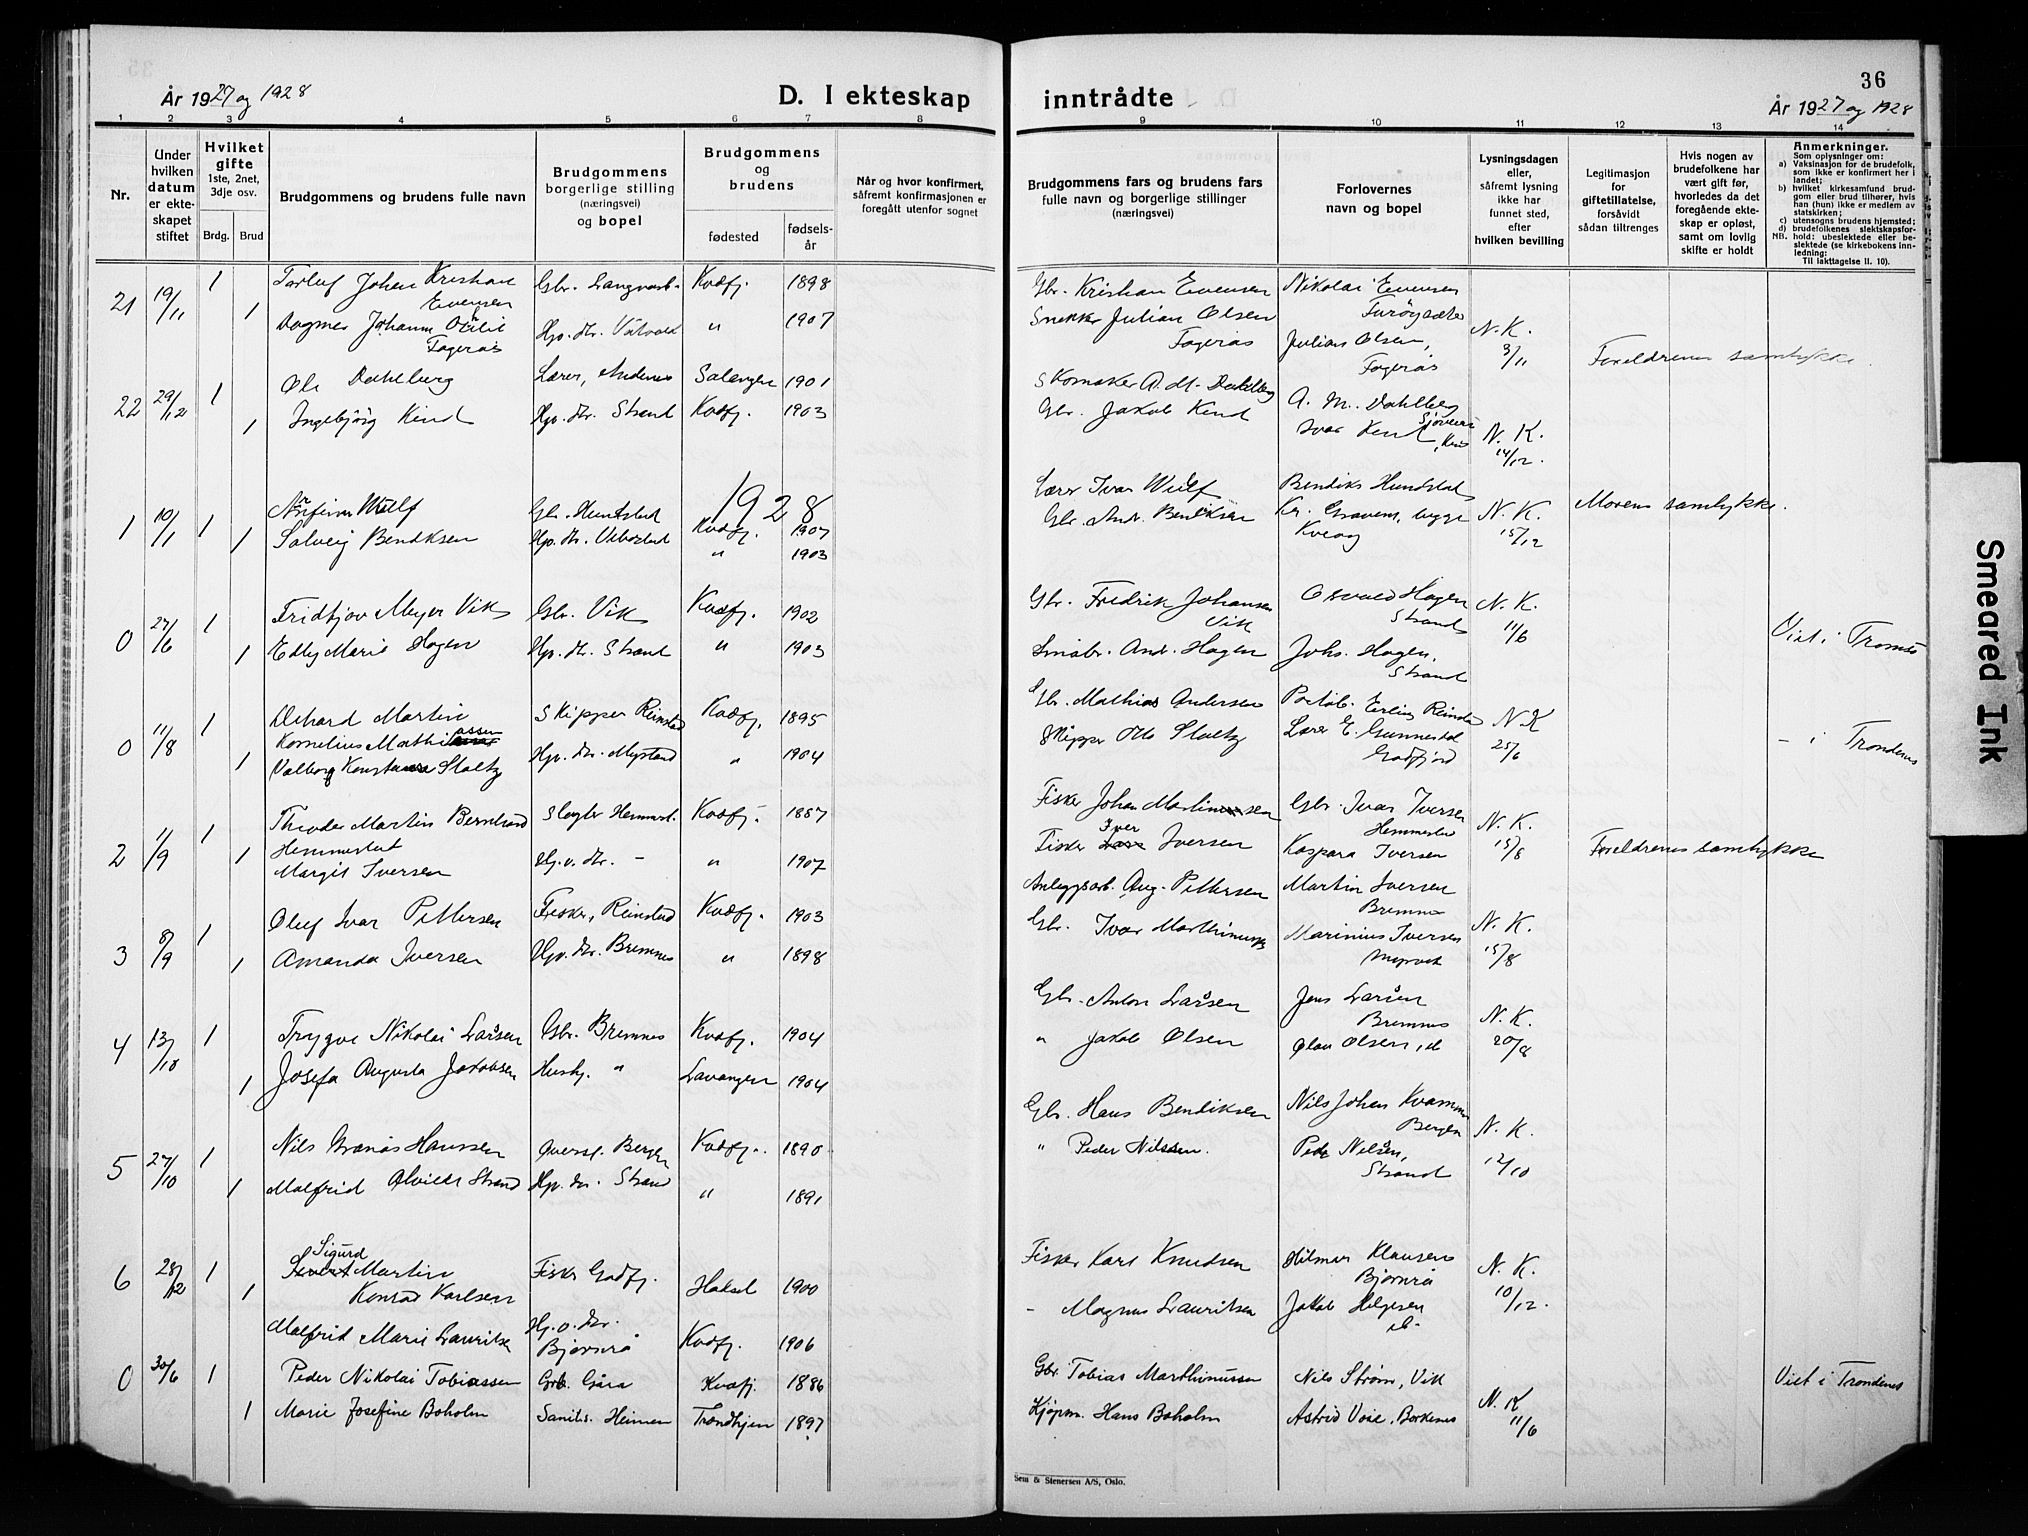 36
År 1927 og 1928
D. I ekteskap
inntrådte
År 1927 og 1928
1 2 3 4 5 6 7 8 9 10 11 12 13 14
Nr.
Under hvilken datum er ekteskapet stiftet
Hvilket gifte 1ste, 2net, 3dje osv.
Brdg. Brud
Brudgommens og brudens fulle navn
Brudgommens borgerlige stilling (næringsvei) og bopel
Brudgommens og brudens
fødested
fødsels-år
Når og hvor konfirmert, såfremt konfirmasjonen er foregått utenfor sognet
Brudgommens fars og brudens fars fulle navn og borgerlige stillinger (næringsvei)
Forlovernes navn og bopel
Lysningsdagen eller, såfremt lysning ikke har funnet sted, efter hvilken bevilling
Legitimasjon for giftetillatelse, forsåvidt sådan tiltrenges
Hvis nogen av brudefolkene har vært gift før, hvorledes da det foregående ekteskap er opløst, samt om lovlig skifte er holdt
Anmerkninger.
Som oplysninger om:
a) Vaksinasjon for de brudefolk, som ikke er konfirmert her i landet;
b) hvilket kirkesamfund brudgom eller brud tilhører, hvis han (hun) ikke er medlem av statskirken;
c) utensogns brudens hjemsted;
d) brudefolkenes slektskapsforhold: ubeslektede eller beslektede (se kirkebokens innledning:
NB.
Til iakttagelse II. 10).
21 19/11 1 Johan Kristian Evensen Gbr. Kvæfj. 1898 Gbr. Kristian Evensen Nikolai Evensen
1 Dagmar Johanne Fagerås Hp. dtr. " 1907 Snekker Julian Olsen Fagerås Julian Olsen, Fagerås N. K. 3/11 Foreldrenes samtykke
22 29/12 1 Ole Dahlberg Lærer, Andenes Salangen 1901 Skomaker A. M. Dahlberg A. M. Dahlberg
1 Ingebjörg Kind Hp. dtr. Strand Kvæfj. 1903 Gbr. Jakob Kind Ivar Kind N. K. 14/12.
1928
1 10/1 1 Arnfinn Wulf Gbr. Hundstad Kvæfj. 1907 Lærer Ivar Wulf Bendiks Hundstad N. K. 15/12 Morens samtykke.
1 Solveig Bendiksen Hp. dtr. " 1903 Gbr. Andr. Bendiksen Kr. Gravem, bygge Kveøy
0 27/6 1 Fridtjov Meyer Vik Gbr. Vik Kvæfj. 1902 Gbr. Fredrik Johansen Vik Osvald Hagen Strand N. K. 11/6 Viet i Tromsö
1 Edby Marie Hagen Hp. dtr. Strand " 1903 Småbr. Andr. Hagen Johs. Hagen, Strand
0 11/8 1 Martin Kornelius Mathiassen Skipper Reinstad Kvæfj. 1895 Gbr. Mathias Andersen Erling N K 25/6 – i Trondenes
1 Valborg Konstanse Stoltz Hp. dtr. " 1904 Skipper Otto Stoltz Lærer E. Gunnestad Godfjord
2 1/9 1 Theodor Martin Bernhard Hemmestad Kvæfj. 1887 Fisker Johan Martinussen Gbr. Ivar Iversen Hemmestad N. K. 15/8 Foreldrenes samtykke
1 Margit Iversen Hp. dtr. – " 1907 Fisker Iver Iversen Kaspara Iversen
3 8/9 1 Oluf Ivar Pettersen Fisker, Reinstad Kvæfj. 1903 Anleggsarb. Aug. Pettersen Martin Iversen Bremnes N. K. 15/8
1 Amanda Iversen Hp. dtr. Bremnes " 1898 Gbr. Ivar Marthinussen Marinius Iversen
4 13/10 1 Trygve Nikolai Larsen Gbr. Bremnes Kvæfj. 1904 Gbr. Anton Larsen Jens Larsen Bremnes N. K. 20/8
1 Josefa Augusta Jakobsen Hush. " Lavangen 1904 " Jakob Olsen Olav Olsen
5 27/10 1 Nils Hanssen Bergen Kvæfj. 1890 Gbr. Hans Bendiksen Nils Johan Kvamme Bergen N. K. 12/10
1 Malfrid Alvilde Strand Hp. dtr. Strand " 1891 " Peder Nilssen. Peder Nilsen, Strand
6 28/12 1 Sigurd Martin Konrad Karlsen Fisker Godfj. Hadsel 1900 Fisker Karl Knudsen Hilmar Klausen Bjørnrå N. K. 10/12.
1 Malfrid Marie Lauritsen Hp. dtr. Bjørnrå Kvæfj. 1906 – Magnus Lauritsen Jakob Helgesen
0 30/6 1 Peder Nikolai Tobiassen Grb. Gåra Kvæfj. 1886 Gbr. Tobias Marthinussen Nils Strøm, Vik Viet i Trondenes
1 Marie Josefine Boholm Heimen Trondhjem 1897 Kjøpm. Hans Boholm Astrid Voie, Borkenes N. K. 11/6
Sem & Stenersen A/S, Oslo.
Smeared Ink